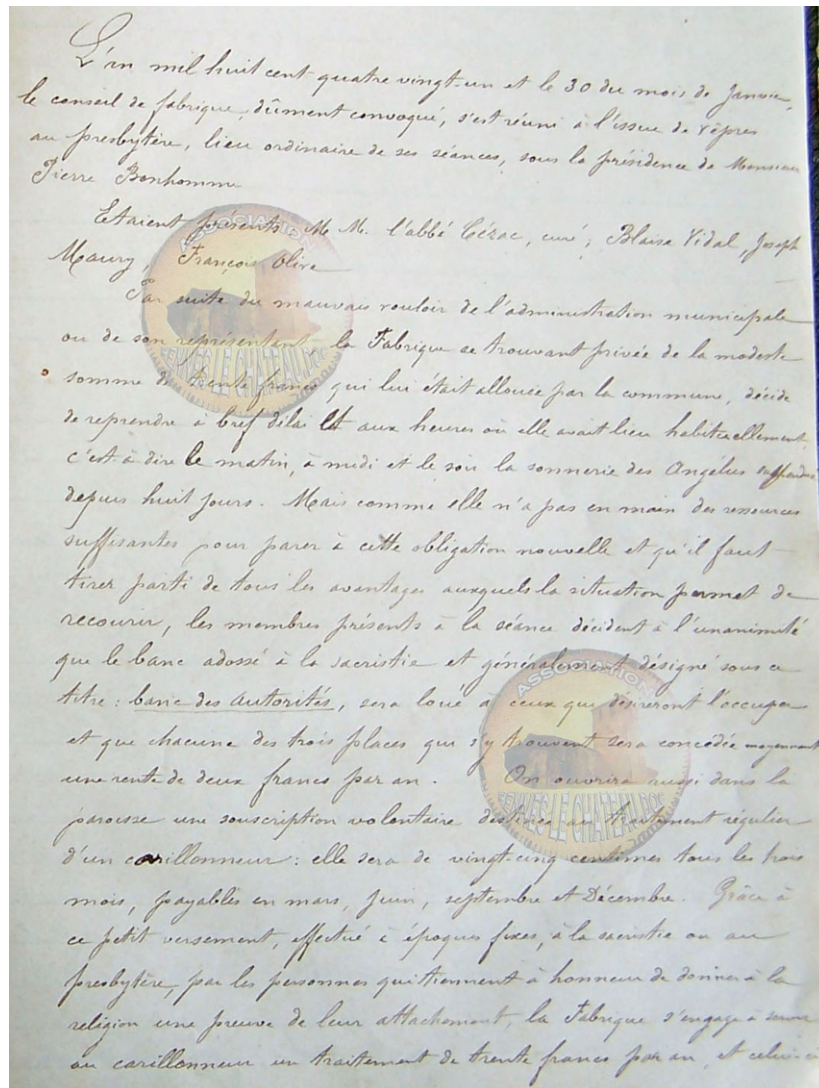 L'an mil huit cent quatre vingt-un et le 30 du mois de Janvier,
le conseil de fabrique, dûment convoqué, s'est réuni à l'issue de vêpres
au presbytère, lieu ordinaire de ses séances, sous la présidence de Monsieur
Pierre Bonhomme
Etaient présents M.M. l'abbé Cézac, curé; Blaise Vidal, Joseph
Maury, François Olive
Par suite du mauvais vouloir de l'administration municipale
ou de son représentant la Fabrique se trouvant privée de la modeste
somme de trente francs qui lui était allouée par la commune, décide
de reprendre à bref délai et aux heures où elle avait lieu habituellement,
c'est-à-dire le matin, à midi et le soir la sonnerie des Angélus suspendue
depuis huit jours. Mais comme elle n'a pas en main des ressources
suffisantes pour parer à cette obligation nouvelle et qu'il faut
tirer parti de tous les avantages auxquels la situation permet de
recourir, les membres présents à la séance décident à l'unanimité
que le banc adossé à la sacristie et généralement désigné sous ce
titre : banc des autorités, sera loué à ceux qui désireront l'occuper
et que chacune des trois places qui s'y trouvent sera concédée moyennant
une rente de deux francs par an. On ouvrira aussi dans la
paroisse une souscription volontaire destinée au traitement régulier
d'un carillonneur : elle sera de vingt-cinq centimes tous les trois
mois, payables en mars, juin, septembre et Décembre. Grâce à
ce petit versement, effectué à époques fixes, à la sacristie ou au
presbytère, par les personnes qui tiennent à honneur de donner à la
religion une preuve de leur attachement, la Fabrique s'engage à servir
au carillonneur un traitement de trente francs par an, et celui-ci
ASSOCIATION
RENNES LE CHATEAU.DOC
ASSOCIATION
RENNES LE CHATEAU.DOC